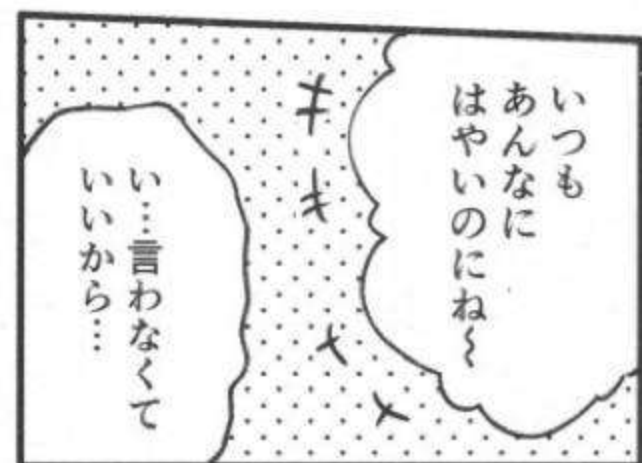 いつも
あんなに
はやいのにね〜
キャハハ
い…言わなくて
いいから…